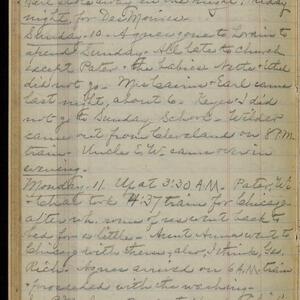 night, for Des Moines.
Sunday, 10. Agnes gone to Lorain to
spend Sunday. All late to Church
except Pater & the babies. Nettie & Ethel
did not go. Mrs. & Earl came
last night, about 6. Keyes & I did
not go to Sunday School. Wilder
came out from Cleveland on 8 P.M.
train. Uncle E.W. came over in
evening.
Monday, 11. Up at 3:30 A.M. Pater, W.
& Ethel took 4:37 train for Chicago
after wh. some of us went back to
bed for a little. Aunt Anna went to
Chicago with them; also, I think, Geo.
Rich. Agnes arrived on 6 A.M. train
& proceeded with the washing.